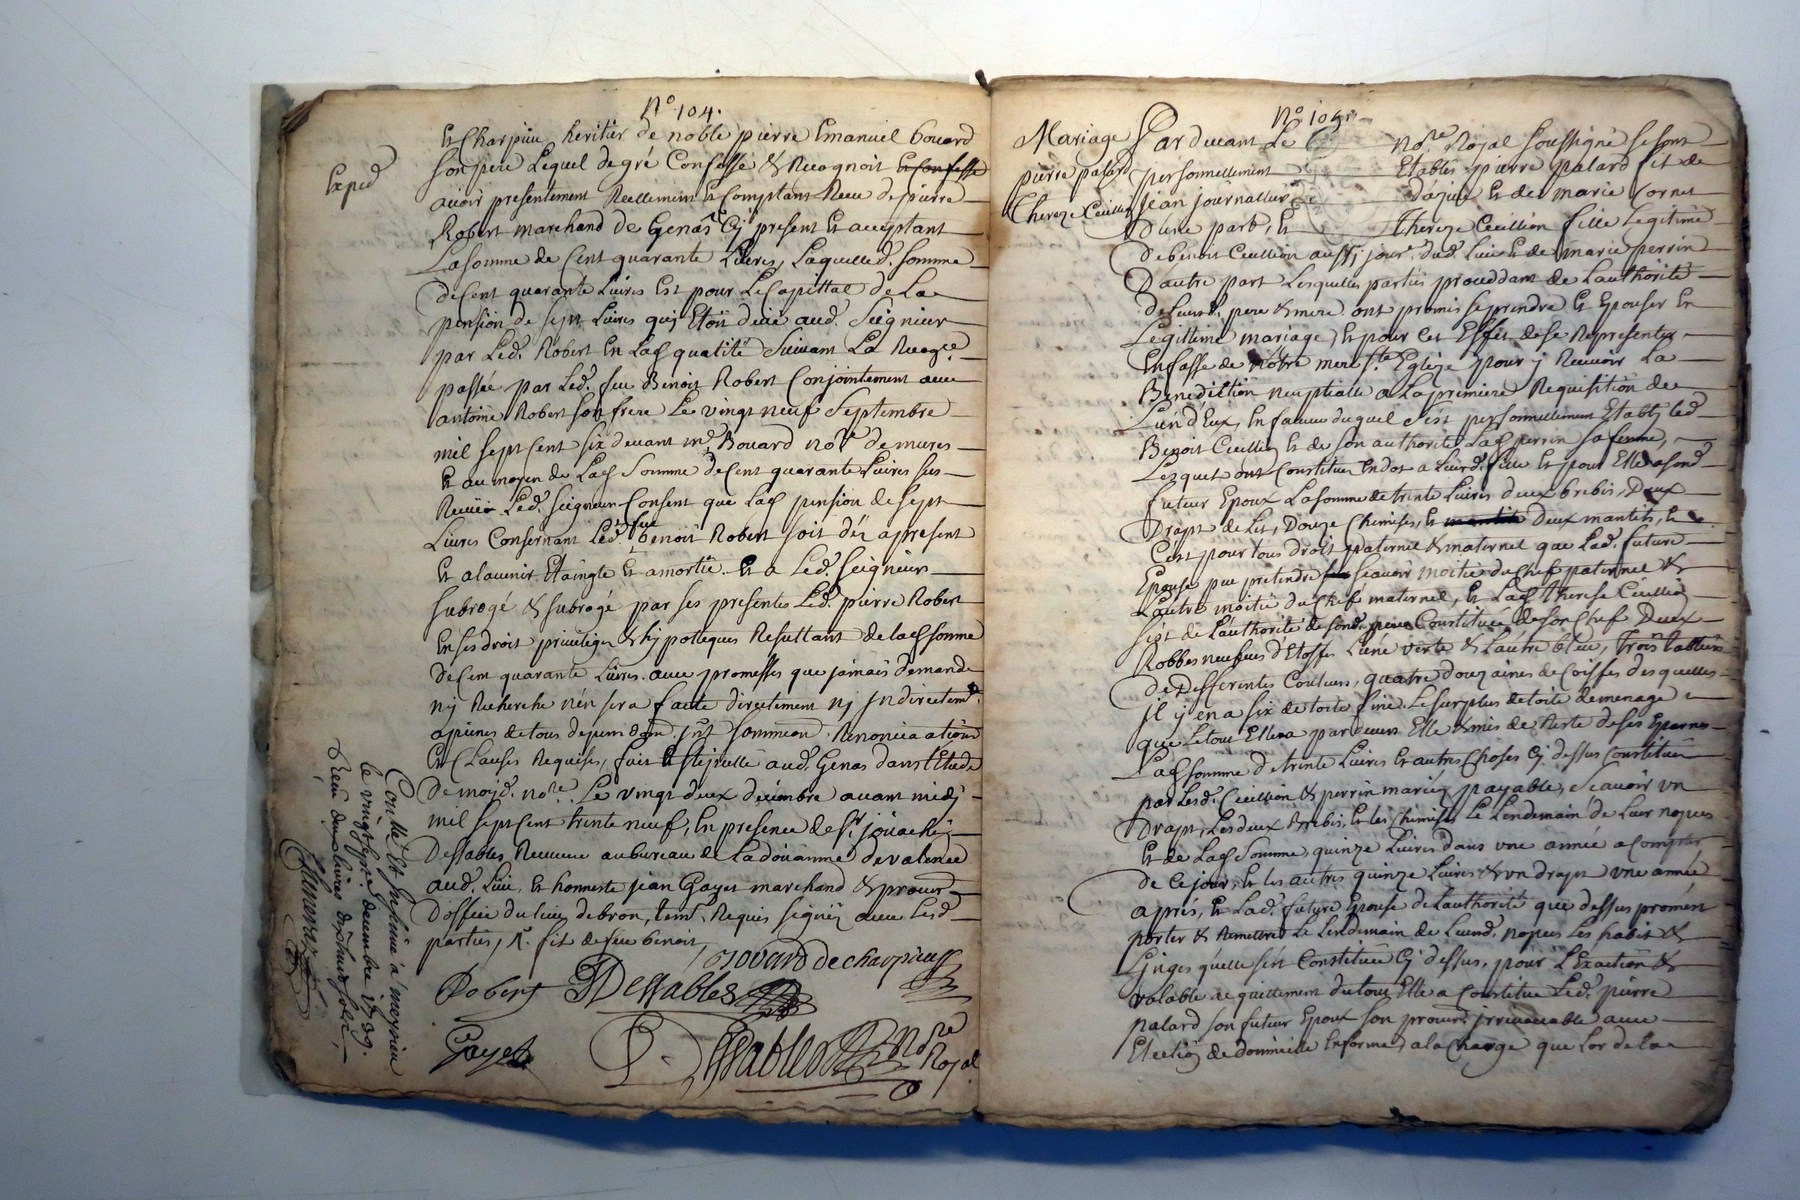 N.o 104.
Exped
Et Charpieu heritier de noble pierre Emanuel bouard
son pere Lequel de gré Confesse & Recognoit Et Confesse
auoir presentement Reellement Et Comptant Reçu de pierre
Robert marchand de Genas Cy present Et acceptant
La somme de Cent quarante Liures, Laquelle d. somme
de Cent quarante Liures Est pour Le Capittal de La
pension de sept Liures quj Etoit deüe aud. Seigneur
par Led. Robert En Lad qualité Suiuant La Recog.ce
passée par Led. feu Benoit Robert Conjointement auec
antoine Robert son frere Le vingt neuf Septembre
mil sept Cent six deuant m.e Bouard no.re de mures
Et au moyen de Lad Somme de Cent quarante Liures sus
Reçüe Led. Seigneur Consent que Lad pension de sept
Liures Consernant Led. feu benoit Robert soit dez apresent
Et alauenir Etaingte Et amortie. Et a Led. Seigneur
subrogé & subroge par ses presentes Led. pierre Robert
En ses droit priuileges & hypotteques Resultant de lad somme
de Cent quarante Liures. auec promesses que jamais demande
nj Recherche n'en sera faitte directement nj Jndirectem.t
a peines de tous depens dom. jnt. sommission Renonciaations
Et Clauses Requises, fait Et stipulle aud. Genas dans l'Etude
de moyd. no.re Le vingt deux decembre auant midj
mil sept Cent trente neuf, En presence de s.r jouachin
Dessables Receueur au bureau de La douanne de valence
aud. Lieu, Et honneste jean Gayet marchand & procur.
d'office du lieu de bron, tem. Requis signéz auec Lesd.
parties, R. fit de feu benoit,
Bouard de charpieu
Robert JDessables
Gayet Dessables No.re Royal
Con.llé Et Insinué a meyzieu
le vingt sept. decembre 1739.
Reçu
N.o 105.
Mariage
pierre palard
Thereze Ceuillion
Par deuant Le No.re Royal soussigné se sont
personnellement Etablis pierre palard fit de
jean journallier Et de marie Cornet
D'une part, Et Thereze Ceuillion fille Legitime
de benoit Ceuillion aussj jour. dud. Lieu Et de marie perrin
D'autre part Lesquelles parties proceddant de L'authorité
de Leursd. pere & mere ont promis se prendre Et Epouser En
Legittime mariage, Et pour Cet Effet de se Representer
En fasse de Notre mere S.te Eglize pour j Receuoir La
Benediction nuptialle a La premiere Requisition de
L'un d'Eux, En faueur duquel s'est personnellement Etablj led.
Benoit Ceuillion Et de son authorité Lad perrin sa femme,
Lezquels ont Constitué En dot a Leurd. fille Et pour Elle a sond.
futeur Epoux La somme de trente Liures deux brebis, Deux
Draps de Lit, Douze Chemises, Et deux mantils, Et
C'est pour tous droit paternel & maternel que Lad. future
Epouse peu pretendre scauoir moitié du Chef paternel &
L'autre moitié du Chef maternel, Et Lad Therese Ceuillion
s'est de L'authorité de sond. pere Constituée de son Chef Deux
Robbes neufues d'Etoffes L'une verte & L'autre bleüe, Trois tabliers
de differentes Couleurs, quatre douzaines de Coiffes desquelles
jl y en a six de toile fine, Le surplus de toile de menage
que Le tout Elle a par deuers Elle Et mis de Reste de ses Eparnes
Lad somme de trente Liures Et autres Choses Cy dessus Constituées
par Lesd. Ceuillion & perrin mariez payable, scauoir un
Drapt, Les deux Brebis, Et les Chemises Le Lendemain de Leur nopces
Et de Lad Somme, quinze Liures dans une année a Compter
de Ce jour, Et les autres quinze Liures & un drapt une année
aprés, Et Lad. future Epouse de L'authorité que dessus promet
porter & Remettre Le Lendemain de Leursd. nopces Les habit &
Linges qu'elle s'est Constituée Cy dessus, pour L'Exaction &
valable acquittement du tout Elle a Constitué Led. pierre
palard son futeur Epoux son procur. jrreuocable auec
Election de domicille En forme, a la Charge que Lor de la